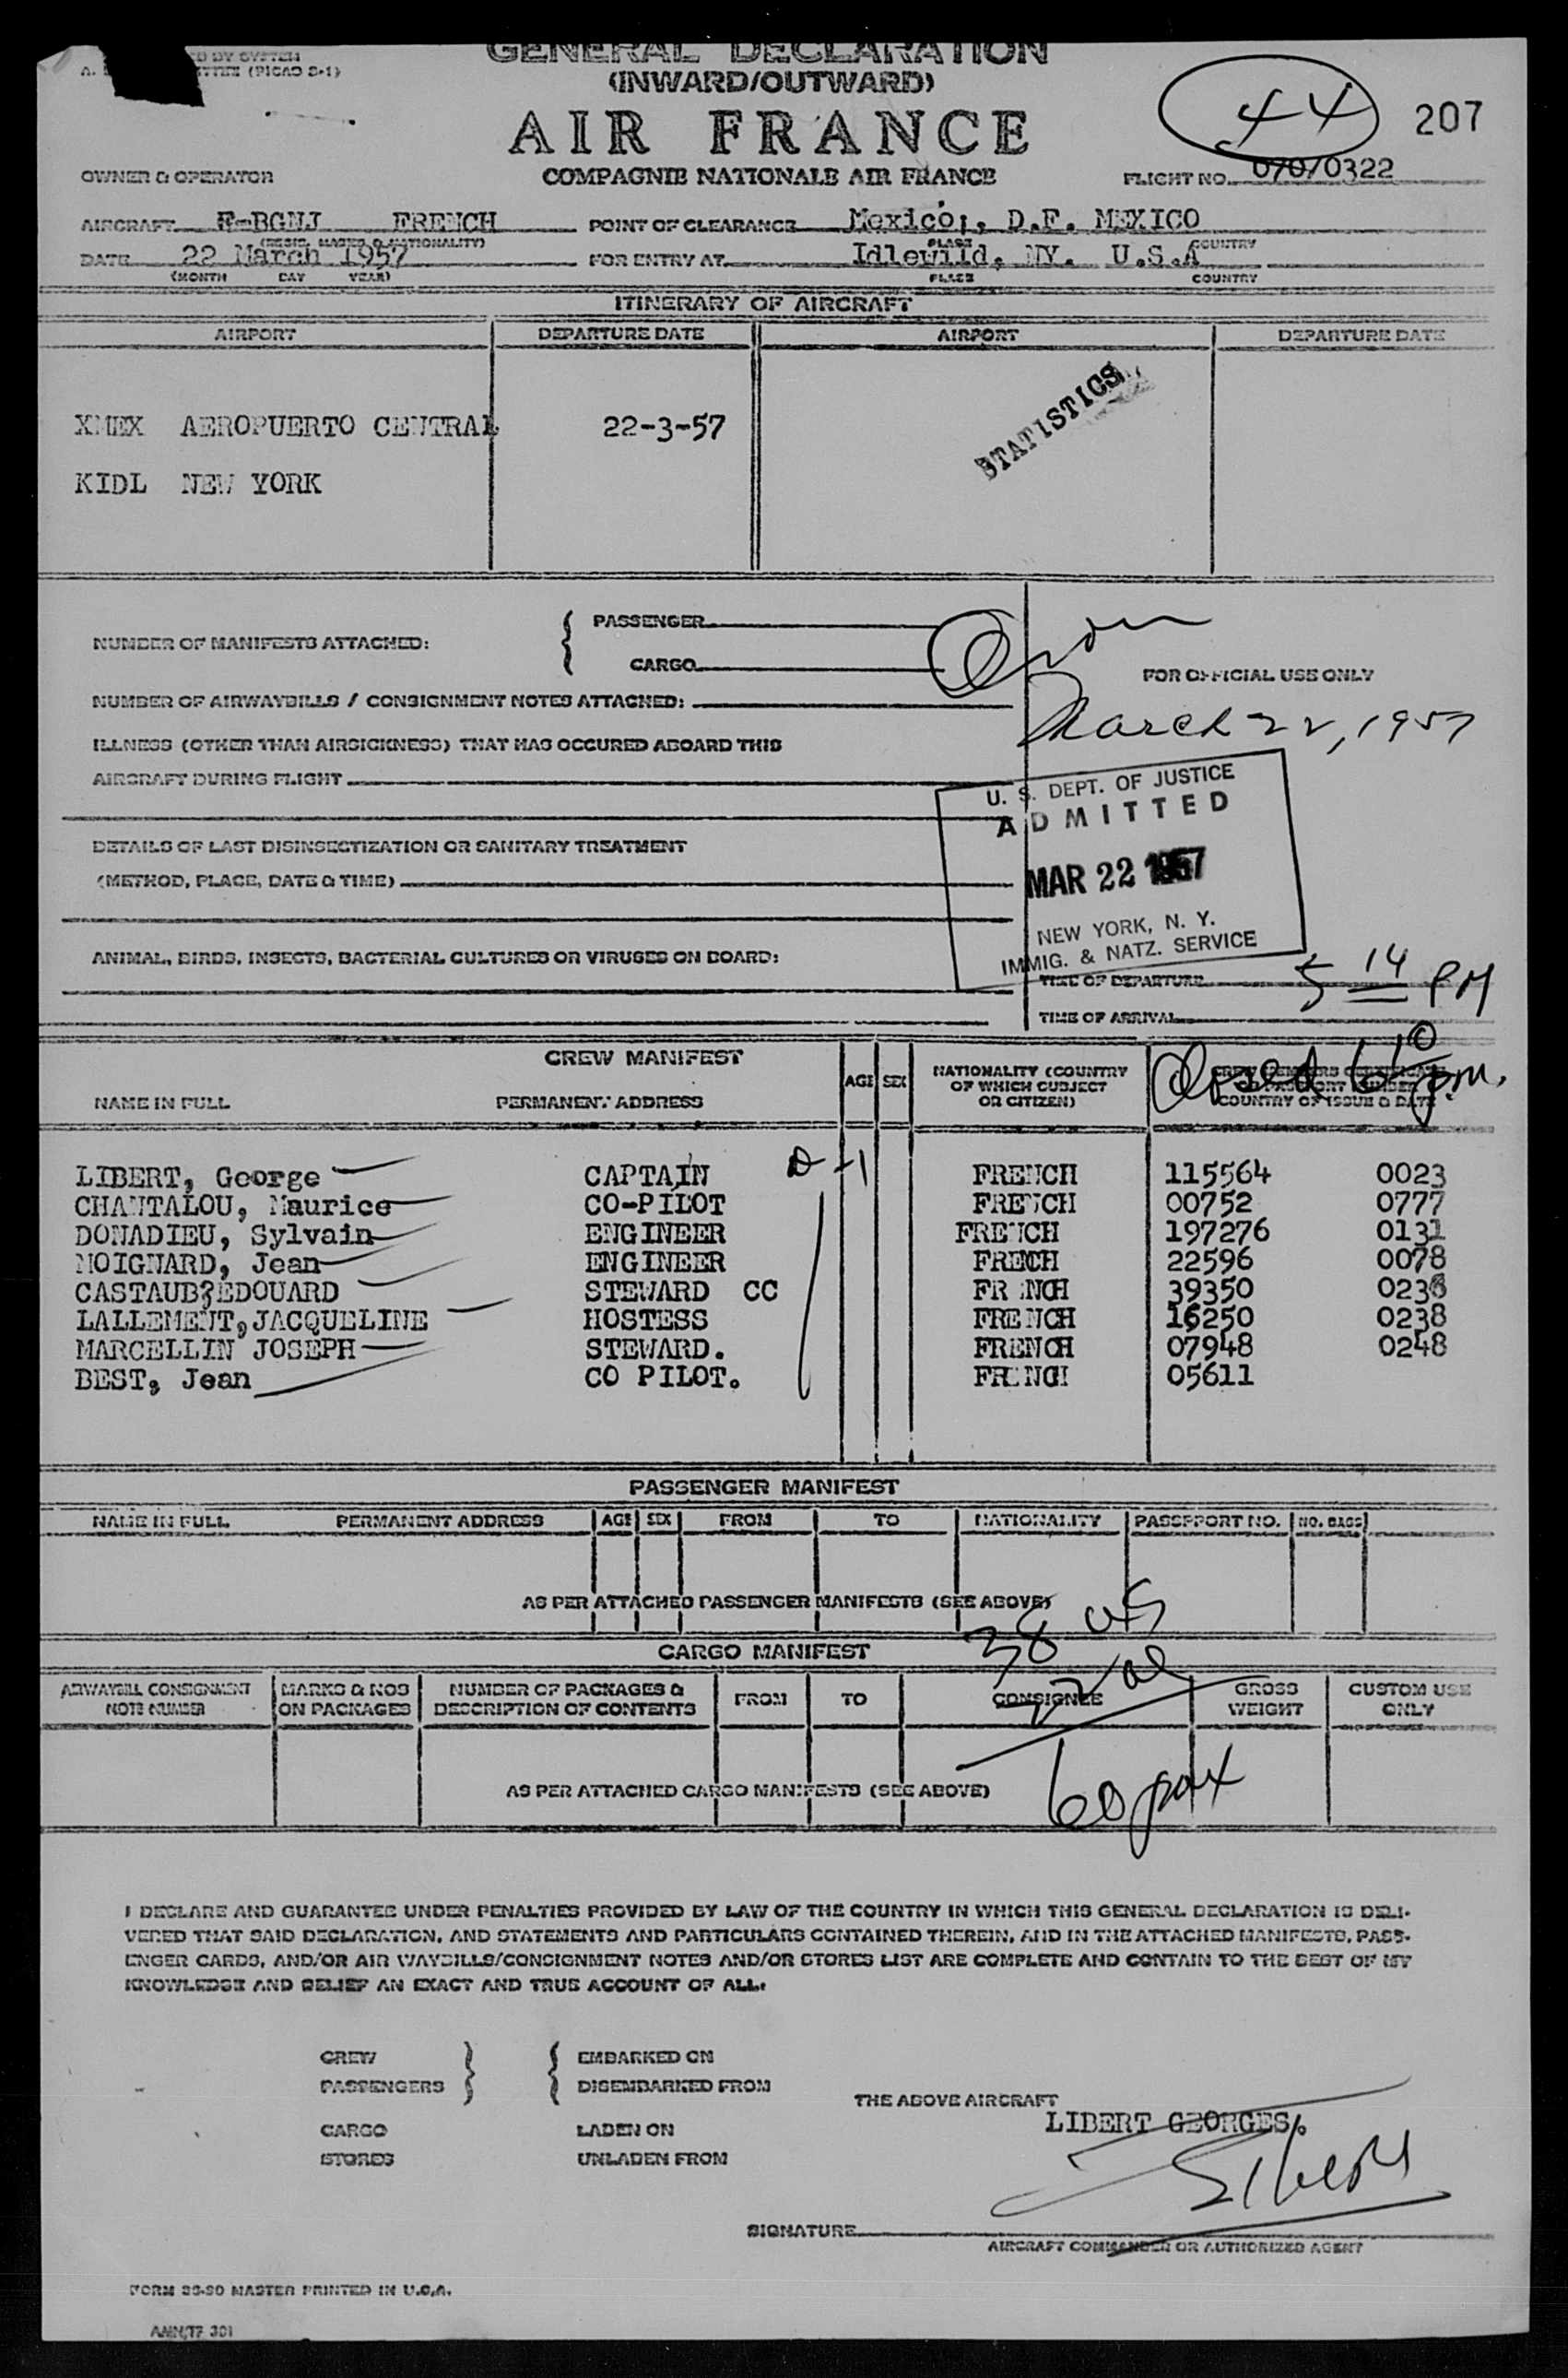 GENERAL DECLARATION
(INWARD/OUTWARD)
AIR FRANCE
COMPAGNIE NATIONALE AIR FRANCE
44
207
OWNER & OPERATOR
FLIGHT NO. 070/0322
AIRCRAFT F-BGNJ FRENCH POINT OF CLEARANCE Mexico;, D.F. MEXICO
(REGIS. MARKS & NATIONALITY) PLACE COUNTRY
DATE 22 March 1957 FOR ENTRY AT Idlewild, NY. U.S.A
(MONTH DAY YEAR) PLACE COUNTRY
ITINERARY OF AIRCRAFT
AIRPORT DEPARTURE DATE AIRPORT DEPARTURE DATE
STATISTICS
XMEX AEROPUERTO CENTRAL 22-3-57
KIDL NEW YORK
NUMBER OF MANIFESTS ATTACHED: { PASSENGER
CARGO
FOR OFFICIAL USE ONLY
NUMBER OF AIRWAYBILLS / CONSIGNMENT NOTES ATTACHED:
March 22, 1957
ILLNESS (OTHER THAN AIRSICKNESS) THAT HAS OCCURED ABOARD THIS
AIRCRAFT DURING FLIGHT
U. S. DEPT. OF JUSTICE
ADMITTED
MAR 22 1957
NEW YORK, N. Y.
IMMIG. & NATZ. SERVICE
DETAILS OF LAST DISINSECTIZATION OR SANITARY TREATMENT
(METHOD, PLACE, DATE & TIME)
ANIMAL, BIRDS, INSECTS, BACTERIAL CULTURES OR VIRUSES ON BOARD:
TIME OF DEPARTURE 5 14 PM
TIME OF ARRIVAL
closed 6 10 p.m.
CREW MANIFEST
NAME IN FULL PERMANENT ADDRESS AGE SEX NATIONALITY (COUNTRY
OF WHICH SUBJECT
OR CITIZEN)
COUNTRY OF ISSUE & DATE
D-1
LIBERT, George CAPTAIN FRENCH 115564 0023
CHANTALOU, Maurice CO-PILOT FRENCH 00752 0777
DONADIEU, Sylvain ENGINEER FRENCH 197276 0131
MOIGNARD, Jean ENGINEER FRENCH 22596 0078
CASTAUB EDOUARD STEWARD CC FRENCH 39350
LALLEMENT, JACQUELINE HOSTESS FRENCH 16250 0238
MARCELLIN JOSEPH STEWARD. FRENCH 07948 0248
BEST, Jean CO PILOT. FRENCH 05611
PASSENGER MANIFEST
NAME IN FULL PERMANENT ADDRESS AGE SEX FROM TO NATIONALITY PASSPPORT NO. NO. BAGS
AS PER ATTACHED PASSENGER MANIFESTS (SEE ABOVE)
38 US
CARGO MANIFEST
AIRWAYBILL CONSIGNMENT
NOTE NUMBER
MARKS & NOS
ON PACKAGES
NUMBER OF PACKAGES &
DESCRIPTION OF CONTENTS
FROM TO CONSIGNEE
GROSS
WEIGHT
CUSTOM USE
ONLY
AS PER ATTACHED CARGO MANIFESTS (SEE ABOVE)
60 pax
I DECLARE AND GUARANTEE UNDER PENALTIES PROVIDED BY LAW OF THE COUNTRY IN WHICH THIS GENERAL DECLARATION IS DELI-
VERED THAT SAID DECLARATION, AND STATEMENTS AND PARTICULARS CONTAINED THEREIN, AND IN THE ATTACHED MANIFESTS, PASS-
ENGER CARDS, AND/OR AIR WAYBILLS/CONSIGNMENT NOTES AND/OR STORES LIST ARE COMPLETE AND CONTAIN TO THE BEST OF MY
KNOWLEDGE AND BELIEF AN EXACT AND TRUE ACCOUNT OF ALL:
CREW EMBARKED ON
PASSENGERS DISEMBARKED FROM
THE ABOVE AIRCRAFT
CARGO LADEN ON
STORES UNLADEN FROM
LIBERT GEORGES.
SIGNATURE
AIRCRAFT COMMANDER OR AUTHORIZED AGENT
FORM 33-90 MASTER PRINTED IN U.S.A.